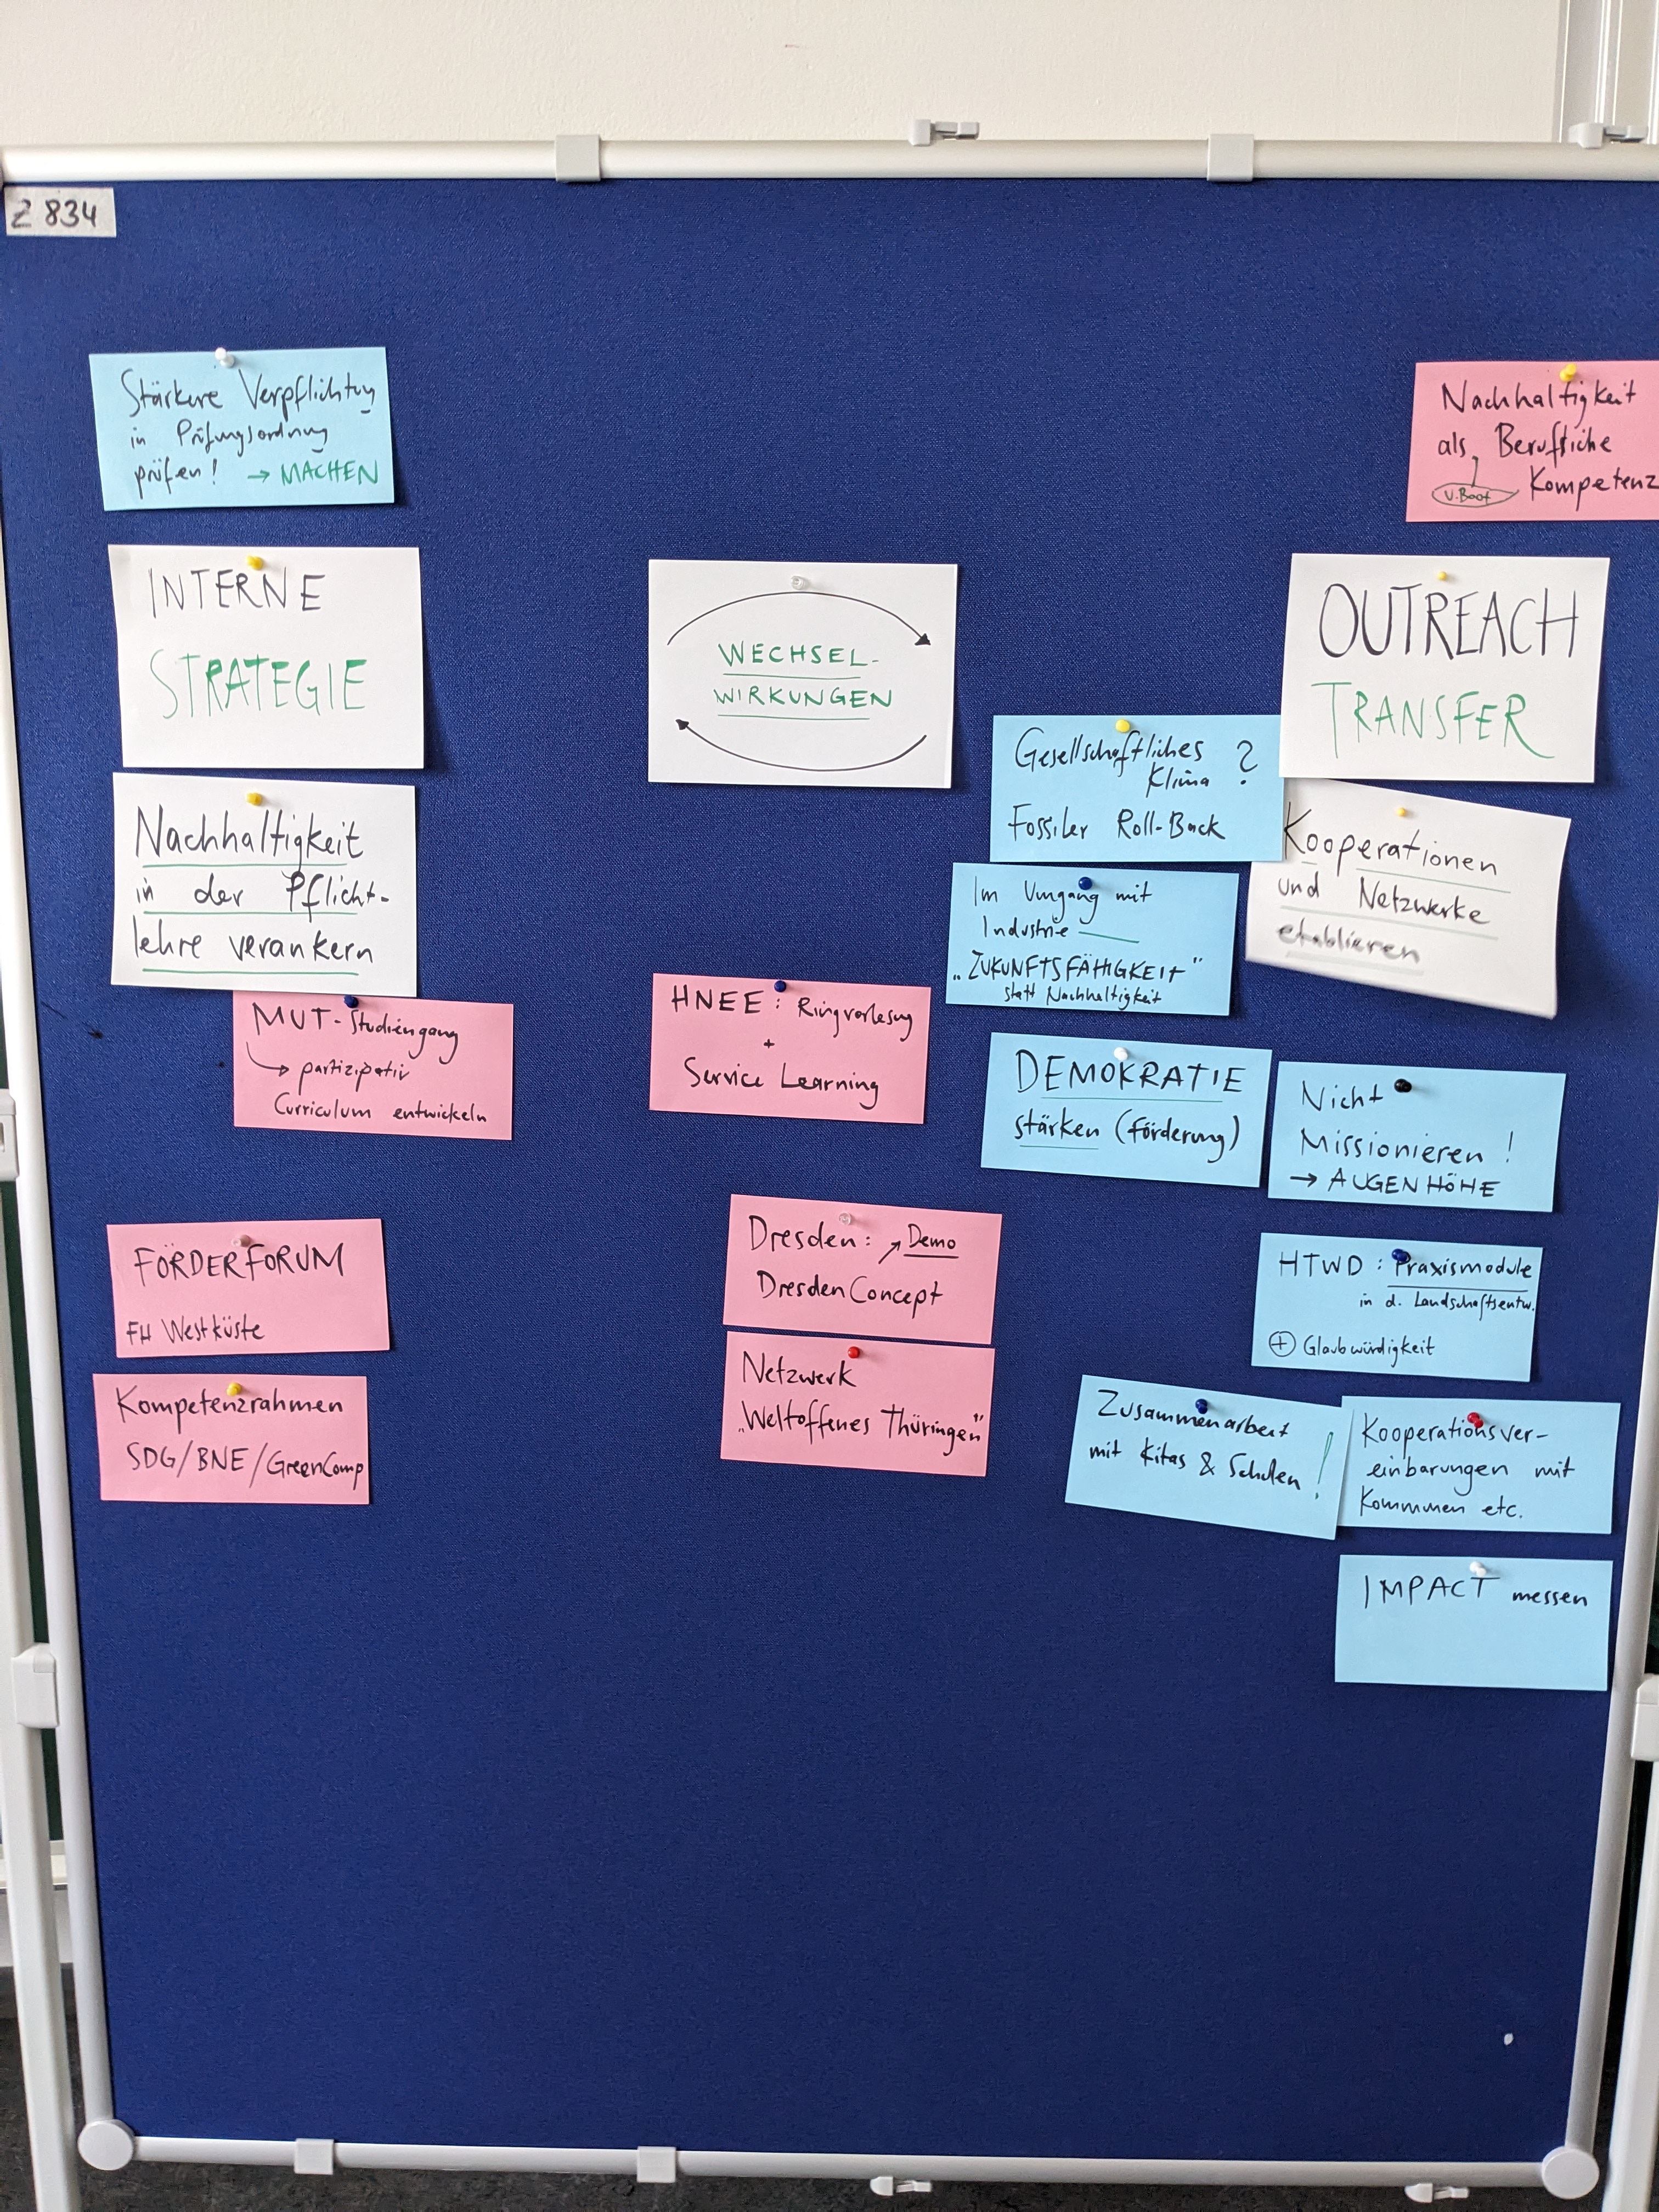 Z 834
Stärkere Verpflichtung
in Prüfungsordnung
prüfen! → MACHEN
INTERNE
STRATEGIE
Nachhaltigkeit
in der Pflicht-
lehre verankern
MUT-Studiengang
→ partizipativ
Curriculum entwickeln
FÖRDERFORUM
FH Westküste
Kompetenzrahmen
SDG/BNE/GreenComp
WECHSEL-
WIRKUNGEN
HNEE: Ringvorlesung
+
Service Learning
Dresden: ↗ Demo
DresdenConcept
Netzwerk
„Weltoffenes Thüringen"
Nachhaltigkeit
als Berufliche
U-Boot Kompetenz
OUTREACH
TRANSFER
Gesellschaftliches
Klima ?
Fossiler Roll-Back
Kooperationen
und Netzwerke
etablieren
Im Umgang mit
Industrie
„ZUKUNFTSFÄHIGKEIT"
statt Nachhaltigkeit
DEMOKRATIE
stärken (Förderung)
Nicht
Missionieren!
→ AUGENHÖHE
HTWD: Praxismodule
in d. Landschaftsentw.
⊕ Glaubwürdigkeit
Zusammenarbeit
mit Kitas & Schulen!
Kooperationsver-
einbarungen mit
Kommunen etc.
IMPACT messen